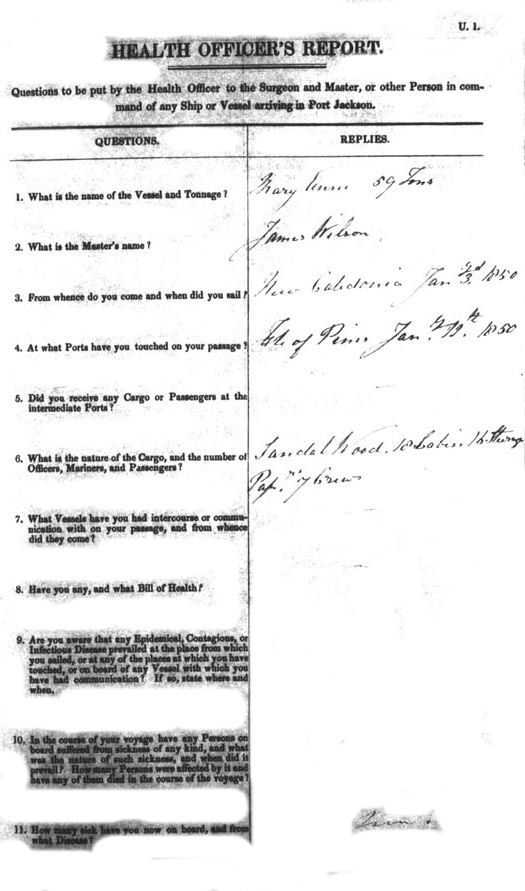 U. 1.
HEALTH OFFICER'S REPORT.
Questions to be put by the Health Officer to the Surgeon and Master, or other Person in com-
mand of any Ship or Vessel arriving in Port Jackson.
QUESTIONS.
REPLIES.
1. What is the name of the Vessel and Tonnage?
Mary Anne 59 Tons
2. What is the Master's name?
James Wilson
3. From whence do you come and when did you sail?
New Caledonia Jany 3rd 1850
4. At what Ports have you touched on your passage?
Isle of Pines Jany 1850
5. Did you receive any Cargo or Passengers at the
intermediate Ports?
6. What is the nature of the Cargo, and the number of
Officers, Mariners, and Passengers?
Sandal Wood. Cabin
7 Crew
7. What Vessels have you had intercourse or commu-
nication with on your passage, and from whence
did they come?
8. Have you any, and what Bill of Health?
9. Are you aware that any Epidemical, Contagious, or
Infectious Disease prevailed at the place from which
you sailed, or at any of the places at which you have
touched, or on board of any Vessel with which you
have had communication? If so, state where and
when.
10. In the course of your voyage have any Persons on
board suffered from sickness of any kind, and what
was the nature of such sickness, and when did it
prevail? How many Persons were affected by it and
have any of them died in the course of the voyage?
11. How many sick have you now on board, and from
what Disease?